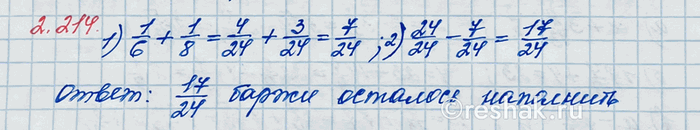 2.214. 1) 1/6 + 1/8 = 4/24 + 3/24 = 7/24 ; 2) 24/24 - 7/24 = 17/24
Ответ: 17/24 баржи осталось наполнить
reshak.ru